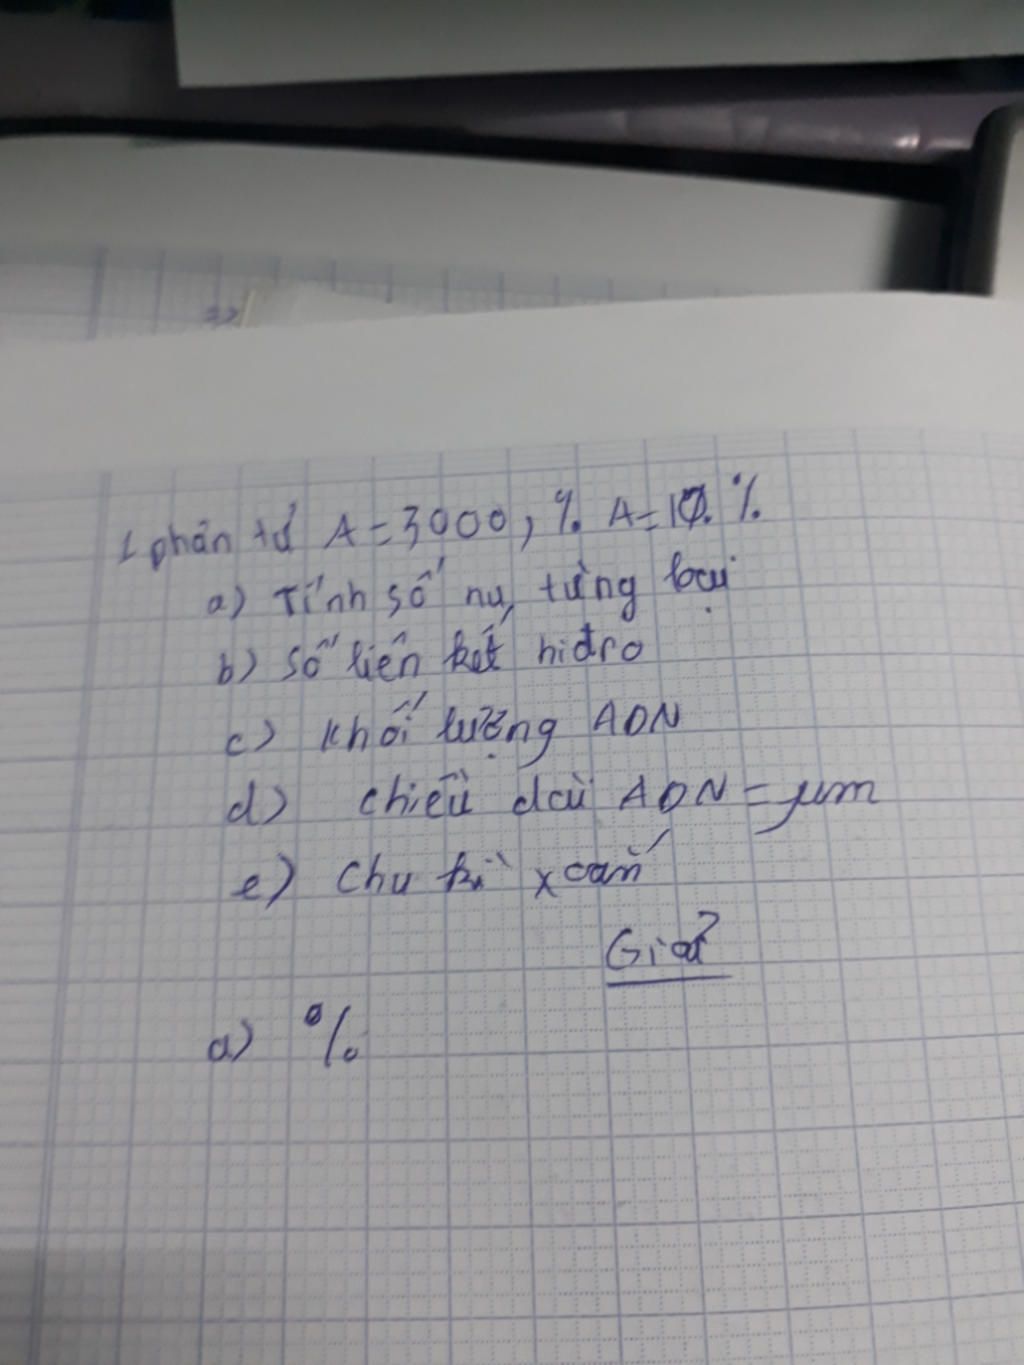 1 phân tử A = 3000, % A = 10 %
a) Tính số nu từng loại
b) số liên kết hiđro
c) Khối lượng ADN
d) chiều dài ADN = µm
e) Chu kì xoắn
Giải
a) %